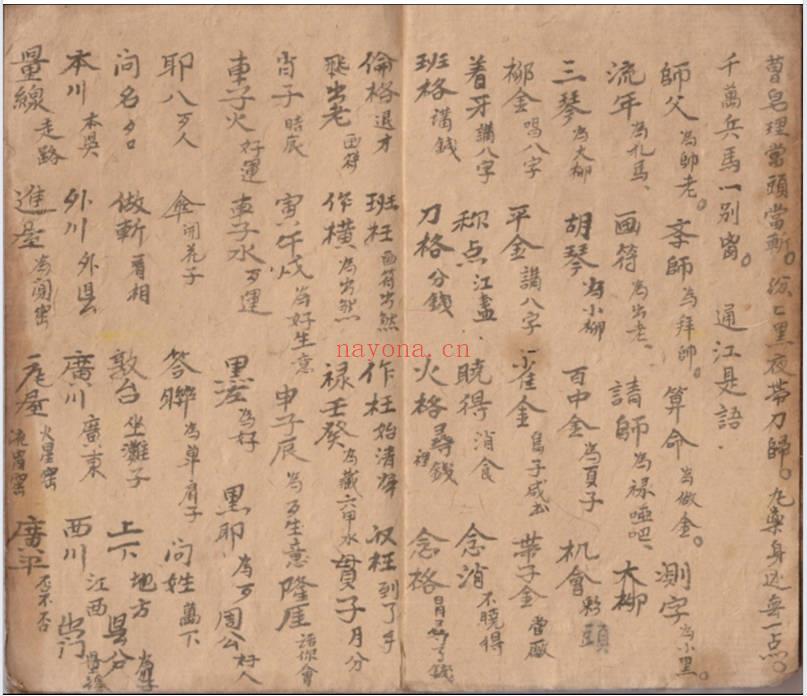 曹皂理當頭當斬。黑夜帶刀歸。九藥身邊無一点。
千萬兵馬一别窑。 通江是語.
師父為師老。 孝師為拜師。 算命為做金。 測字為小黑。
流年為扎馬、 画符為出老、 請師為禄哑吧、 大柳
三琴為大柳 胡琴為小柳 百中金為頁子 机會夥頭
柳金唱八字 平金講八字 雀金鳥子咸出 带子金當廠
着牙講八字 称点江盡. 曉得消食 念消不曉得
班格講錢 刀格分錢 火格尋錢 念格冒尋了錢
nayona.cn
倫格退才 班枉画符当然 作枉始清 収枉到了手
飛出老画符 作横為当然 禄壬癸為藏六甲水 貫子月分
宵子時辰 寅午戌為好生意 申子辰為歹生意 隆厓話你會
車子火好運 車子水歹運 里窪為好 黑耶為歹 周公好人
耶八歹人 傘開花子 答聯為单肩子 问姓萬下
问名夕口 做斬看相 敦台坐灘子 上下地方 县分
本川本县 外川外县 廣川廣東 西川江西 出门
量線走路 進屋為闯窑 尾屋火星窑 廣平否不否